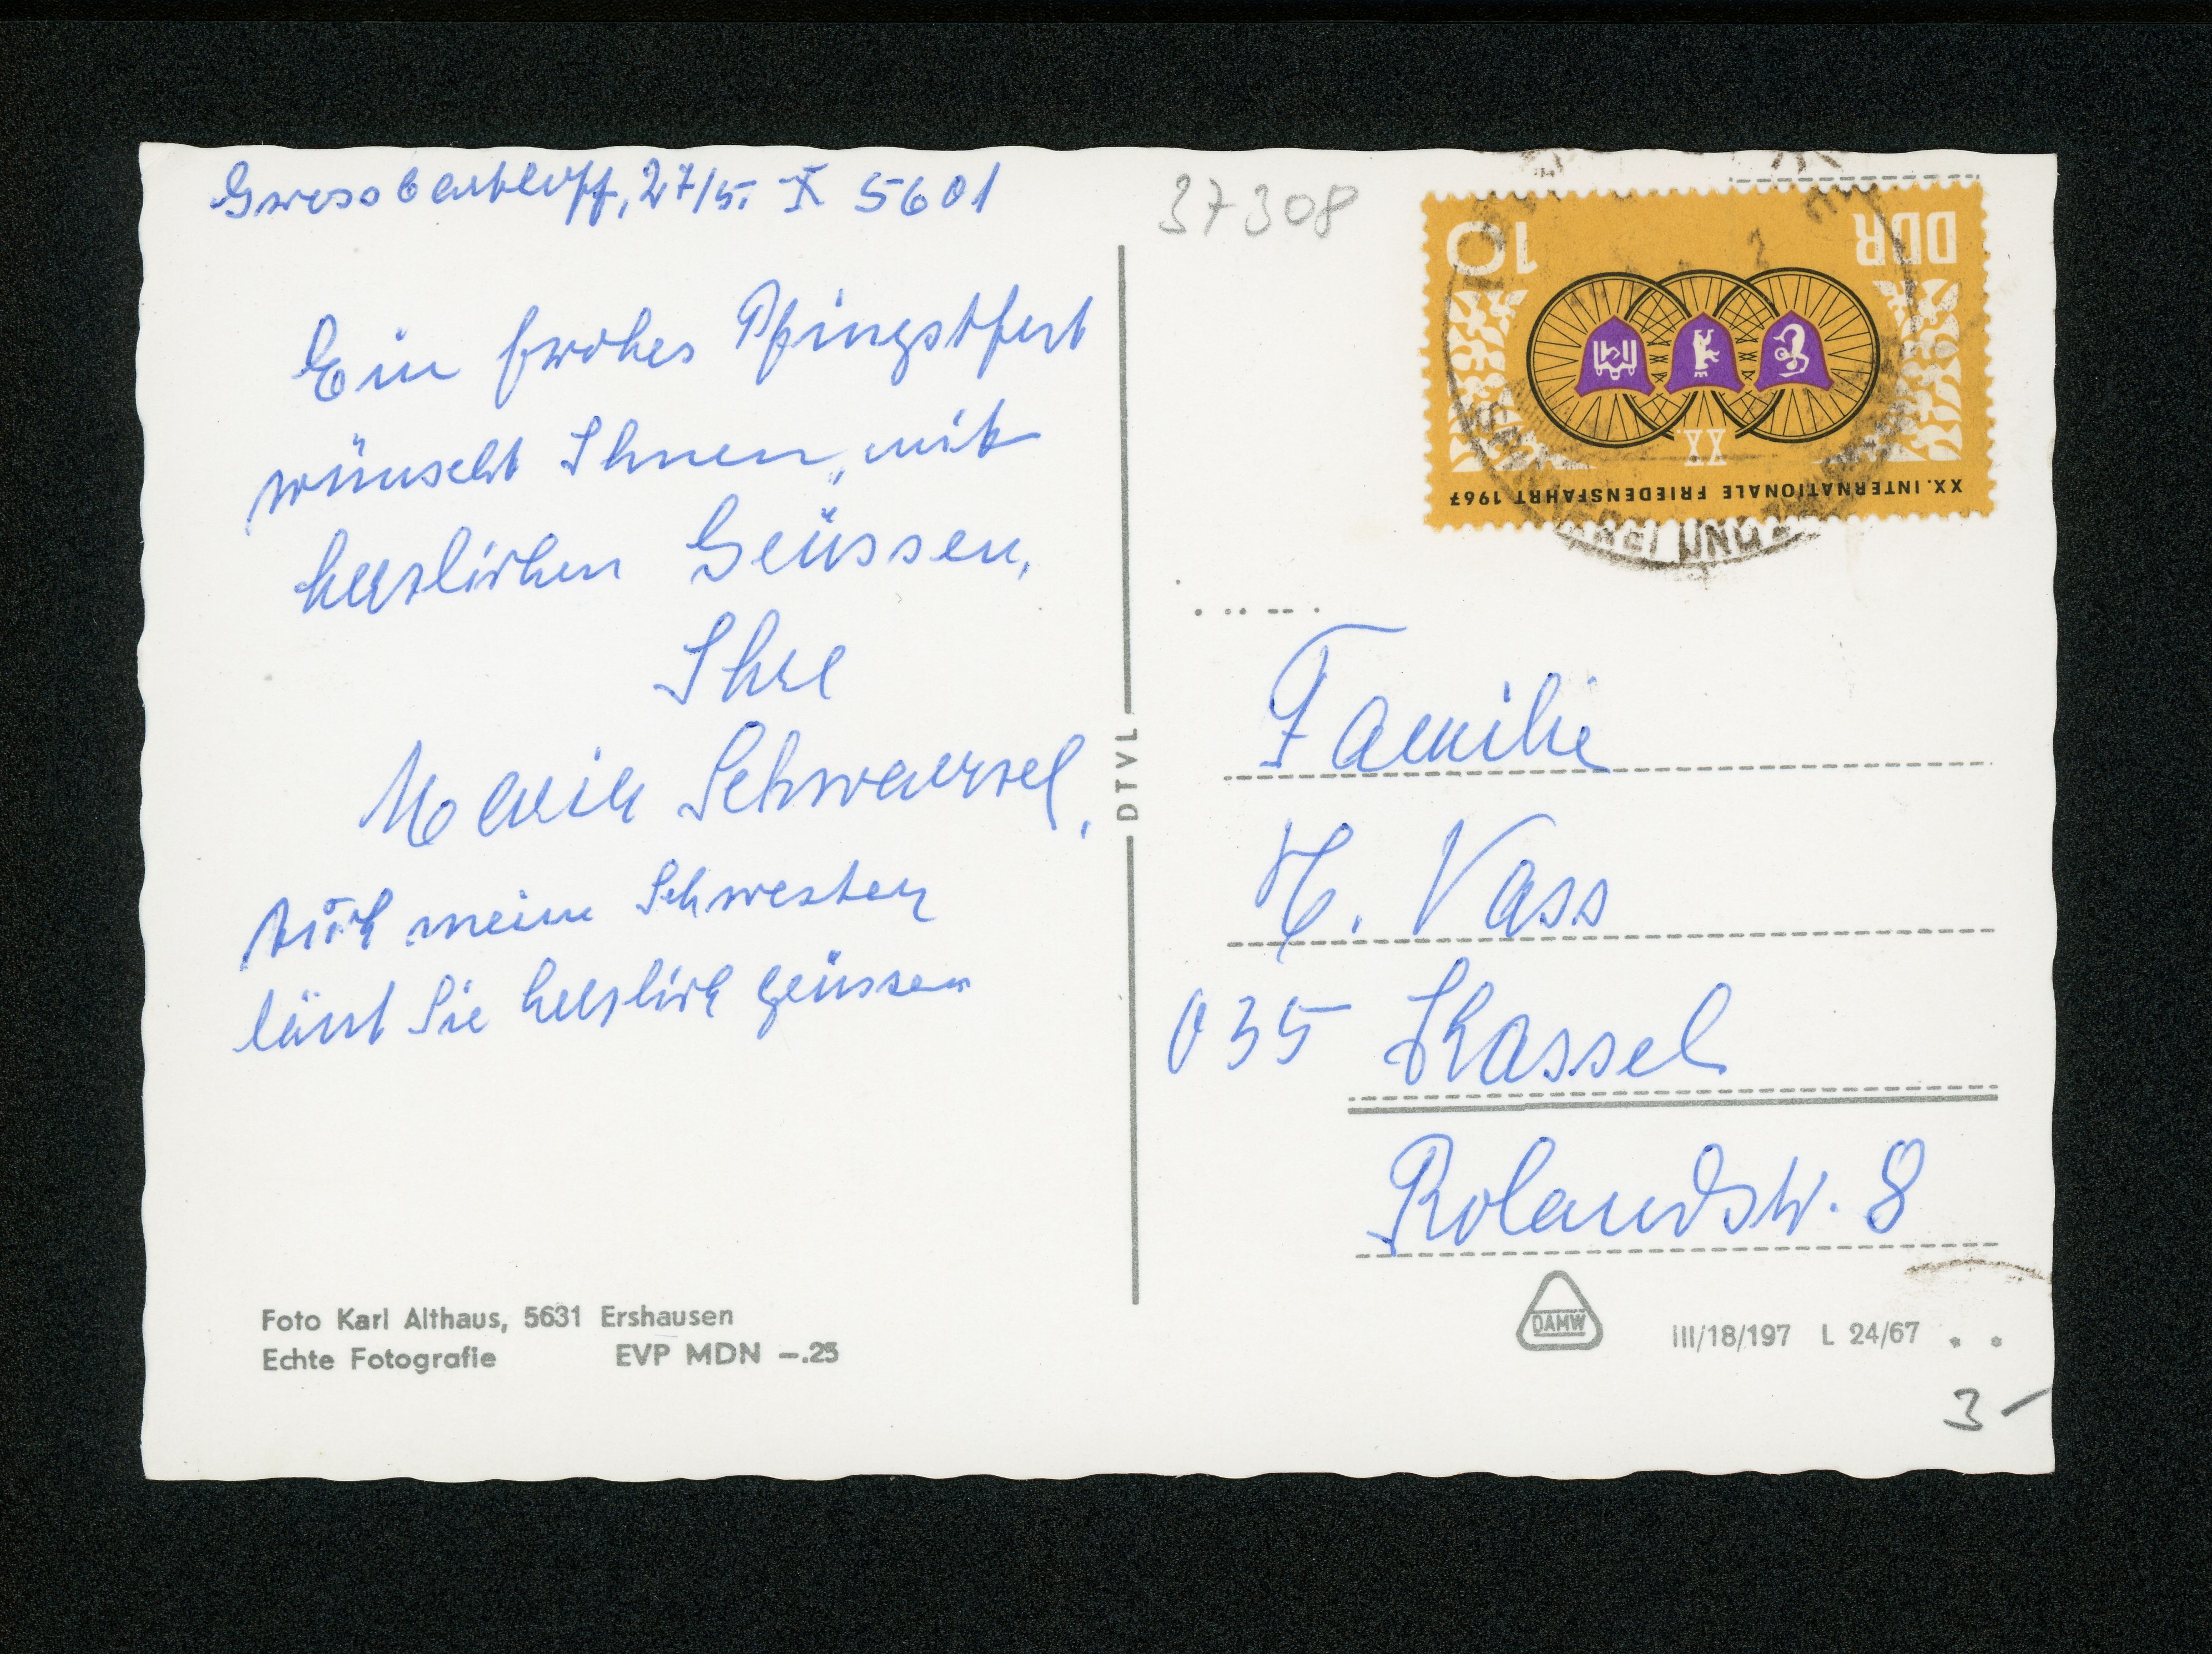 Grossbartloff, 27/5. X 5601
Ein frohes Pfingstfest
wünscht Ihnen, mit
herzlichen Grüssen,
Ihre
Maria Schwarzel,
Auch meine Schwester
lässt Sie herzlich grüssen
Foto Karl Althaus, 5631 Ershausen
Echte Fotografie EVP MDN –.25
DTVL
37308
10 DDR
XX
XX. INTERNATIONALE FRIEDENSFAHRT 1967
Familie
H. Vass
035 Kassel
Rolandstr. 8
DAMW
III/18/197 L 24/67
3 –